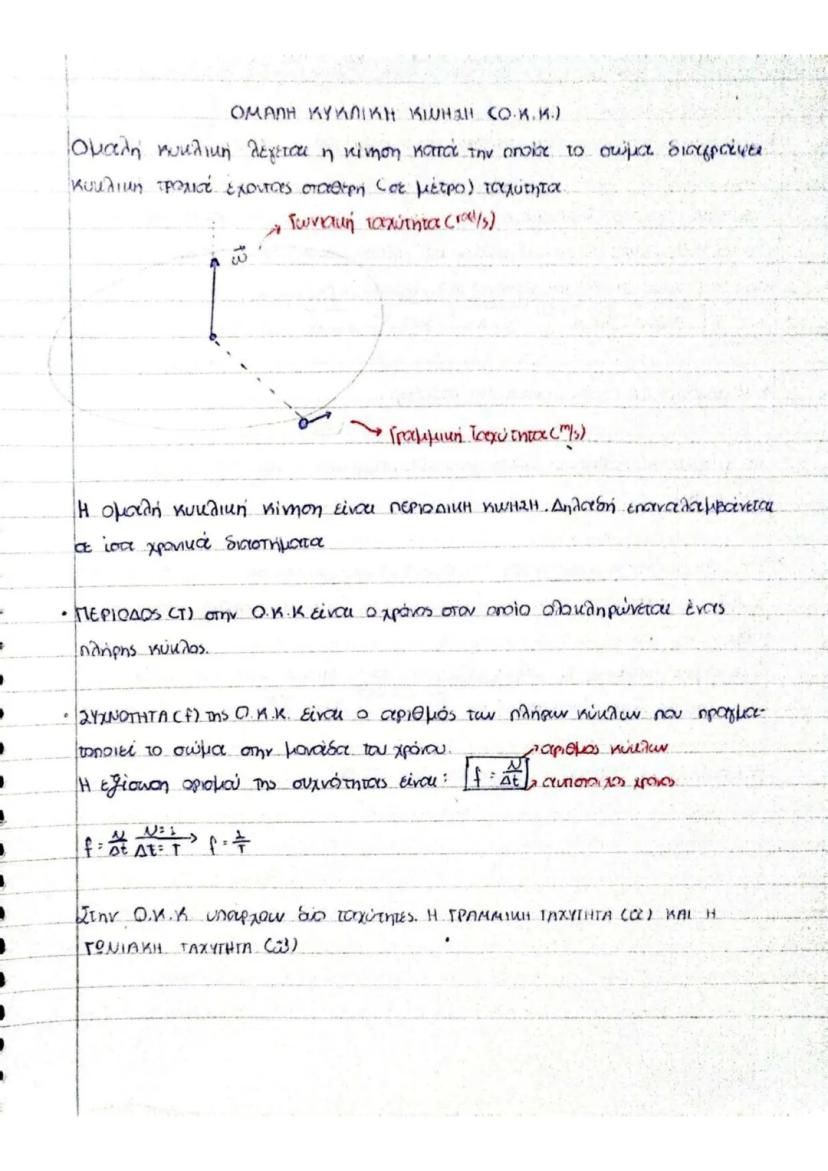 ΟΜΑΛΗ ΚΥΚΛΙΚΗ ΚΙΝΗΣΗ (Ο.Κ.Κ.)
Ομαλή κυκλική λέγεται η κίνηση κατά την οποία το σώμα διαγράφει
κυκλική τροχιά έχοντας σταθερή (σε μέτρο) ταχύτητα
Γωνιακή ταχύτητα (rad/s)
ω⃗
Γραμμική Ταχύτητα (m/s)
Η ομαλή κυκλική κίνηση είναι ΠΕΡΙΟΔΙΚΗ ΚΙΝΗΣΗ. Δηλαδή επαναλαμβάνεται
σε ίσα χρονικά διαστήματα
• ΠΕΡΙΟΔΟΣ (Τ) στην Ο.Κ.Κ είναι ο χρόνος στον οποίο ολοκληρώνεται ένας
πλήρης κύκλος.
• ΣΥΧΝΟΤΗΤΑ (f) της Ο.Κ.Κ. είναι ο αριθμός των πλήρων κύκλων που πραγμα-
τοποιεί το σώμα στην μονάδα του χρόνου.
αριθμος κύκλων
Η εξίσωση ορισμού της συχνότητας είναι: f = N/Δt
αντιστοιχος χρόνος
f = N/Δt N=1 Δt=T → f = 1/T
Στην Ο.Κ.Κ υπάρχουν δύο ταχύτητες. Η ΓΡΑΜΜΙΚΗ ΤΑΧΥΤΗΤΑ ΚΑΙ Η
ΓΩΝΙΑΚΗ ΤΑΧΥΤΗΤΑ (ω⃗)